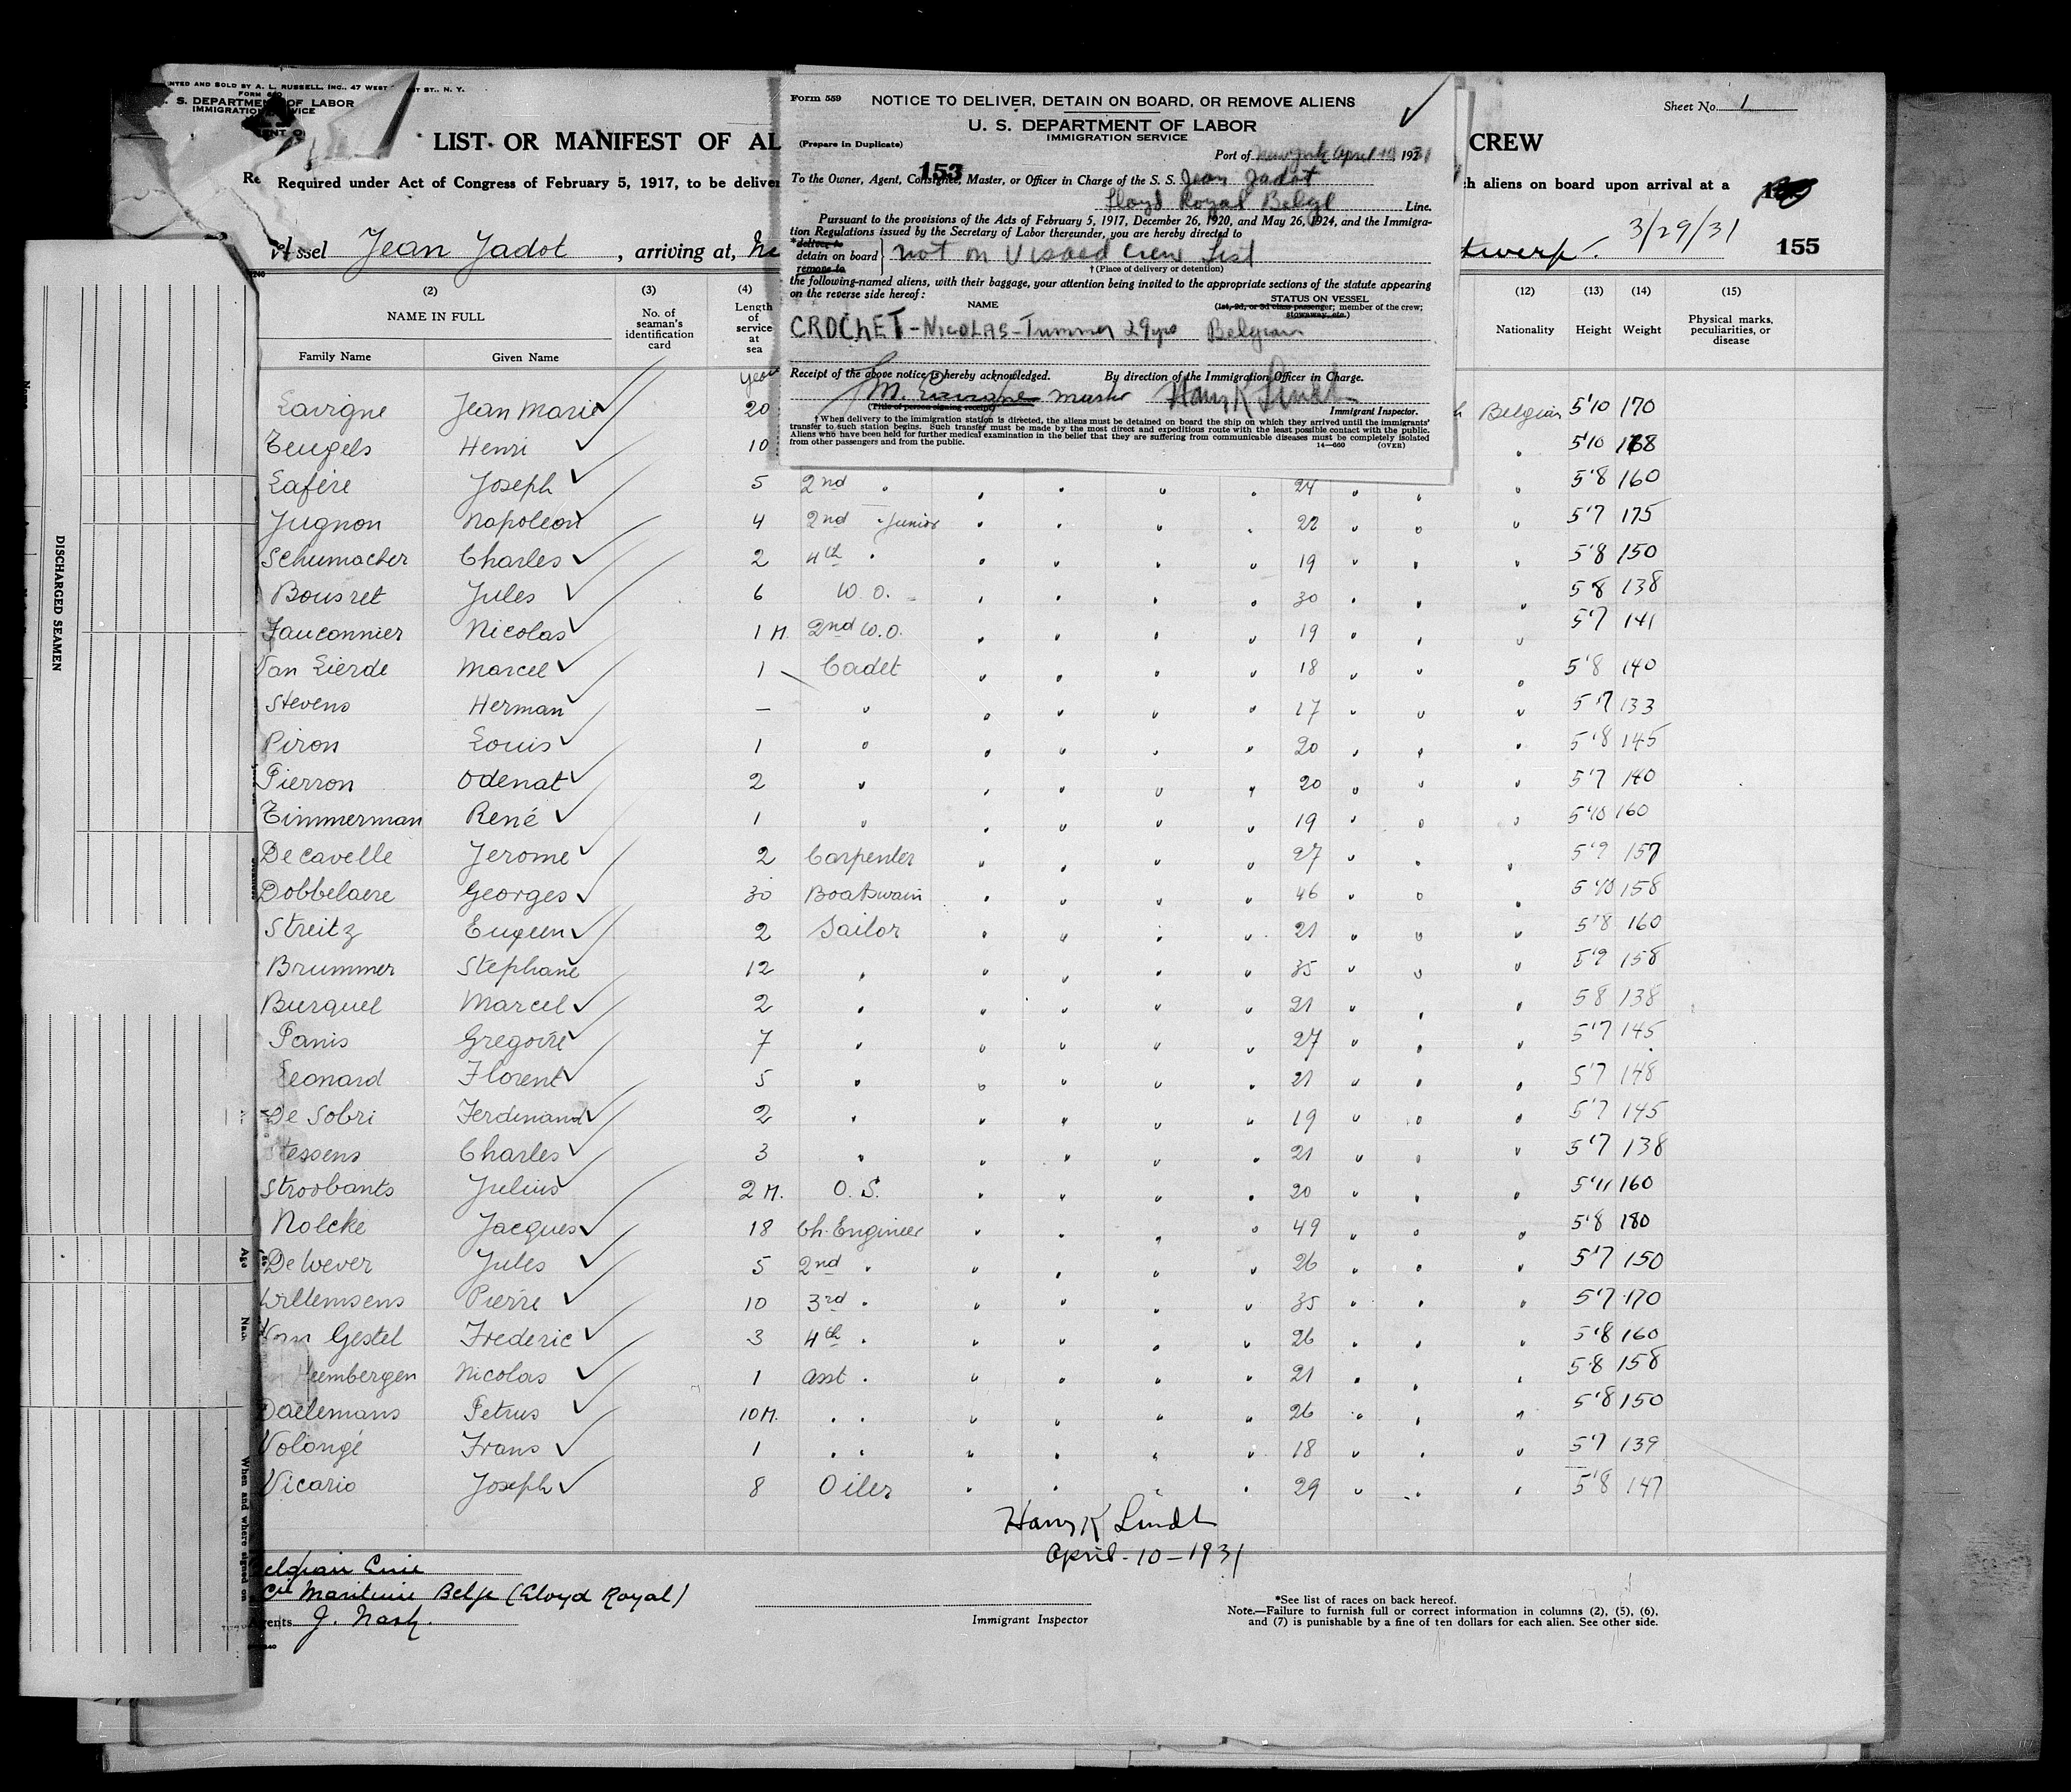 NTED AND SOLD BY A. L. RUSSELL, INC., 47 WEST ST., N. Y.
S. DEPARTMENT OF LABOR
IMMIGRATION SERVICE
LIST OR MANIFEST OF AL
CREW
Sheet No. 1
Required under Act of Congress of February 5, 1917, to be deliver
ch aliens on board upon arrival at a
ssel Jean Jadot, arriving at,
twerp. 3/29/31
155
Form 559
NOTICE TO DELIVER, DETAIN ON BOARD, OR REMOVE ALIENS
U. S. DEPARTMENT OF LABOR
IMMIGRATION SERVICE
(Prepare in Duplicate)
153
Port of New York April 10, 1931
To the Owner, Agent, Consignee, Master, or Officer in Charge of the S. S. Jean Jadot
Lloyd Royal Belge Line.
Pursuant to the provisions of the Acts of February 5, 1917, December 26, 1920, and May 26, 1924, and the Immigra-
tion Regulations issued by the Secretary of Labor thereunder, you are hereby directed to
*deliver to
detain on board
remove to
not on Visaed Crew List
†(Place of delivery or detention)
the following-named aliens, with their baggage, your attention being invited to the appropriate sections of the statute appearing
on the reverse side hereof:
NAME
STATUS ON VESSEL
(1st, 2d, or 3d class passenger; member of the crew;
stowaway, etc.)
CROCHET - NICOLAS - Trimmer 29 yrs Belgian
Receipt of the above notice is hereby acknowledged. By direction of the Immigration Officer in Charge.
master
(Title of person signing receipt)
Immigrant Inspector.
†When delivery to the immigration station is directed, the aliens must be detained on board the ship on which they arrived until the immigrants'
transfer to such station begins. Such transfer must be made by the most direct and expeditious route with the least possible contact with the public.
Aliens who have been held for further medical examination in the belief that they are suffering from communicable diseases must be completely isolated
from other passengers and from the public.
14—660 (OVER)
(2) (3) (4) (12) (13) (14) (15)
NAME IN FULL
Family Name Given Name
No. of seaman's identification card
Length of service at sea
Nationality Height Weight Physical marks, peculiarities, or disease
Lavigne Jean Marie 20 Belgian 5'10 170
Teugels Henri 10 5'10 168
Lafère Joseph 5 2nd " 24 5'8 160
Jugnon Napoleon 4 2nd " Junior 22 5'7 175
Schumacher Charles 2 4th " 19 5'8 150
Bousret Jules 6 W.O. 30 5'8 138
Fauconnier Nicolas 1 M. 2nd W.O. 19 5'7 141
Van Lierde Marcel 1 Cadet 18 5'8 140
Stevens Herman — " 17 5'7 133
Piron Louis 1 " 20 5'8 145
Pierron Odenat 2 " 20 5'7 140
Timmerman René 1 " 19 5'10 160
Decavelle Jerome 2 Carpenter 27 5'9 157
Dobbelaere Georges 30 Boatswain 46 5'10 158
Streitz Eugeen 2 Sailor 21 5'8 160
Brummer Stephane 12 " 35 5'9 158
Burquel Marcel 2 " 21 5'8 138
Panis Gregoire 7 " 27 5'7 145
Leonard Florent 5 " 21 5'7 148
De Sobri Ferdinand 2 " 19 5'7 145
Stessens Charles 3 " 21 5'7 138
Stroobants Julius 2 M. O.S. 20 5'11 160
Nolcke Jacques 18 Ch. Engineer 49 5'8 180
De Wever Jules 5 2nd " 26 5'7 150
Willemsens Pierre 10 3rd " 35 5'7 170
Van Gestel Frederic 3 4th " 26 5'8 160
eembergen Nicolas 1 Asst " 21 5'8 158
Daelemans Petrus 10 M. " " 26 5'8 150
Volongé Frans 1 " " 18 5'7 139
Vicario Joseph 8 Oiler 29 5'8 147
Harry K Lindt
April-10-1931
Cie Maritime Belge (Lloyd Royal)
Agents J. Nash.
Immigrant Inspector
*See list of races on back hereof.
Note.—Failure to furnish full or correct information in columns (2), (5), (6),
and (7) is punishable by a fine of ten dollars for each alien. See other side.
DISCHARGED SEAMEN
Age
When and where signed on